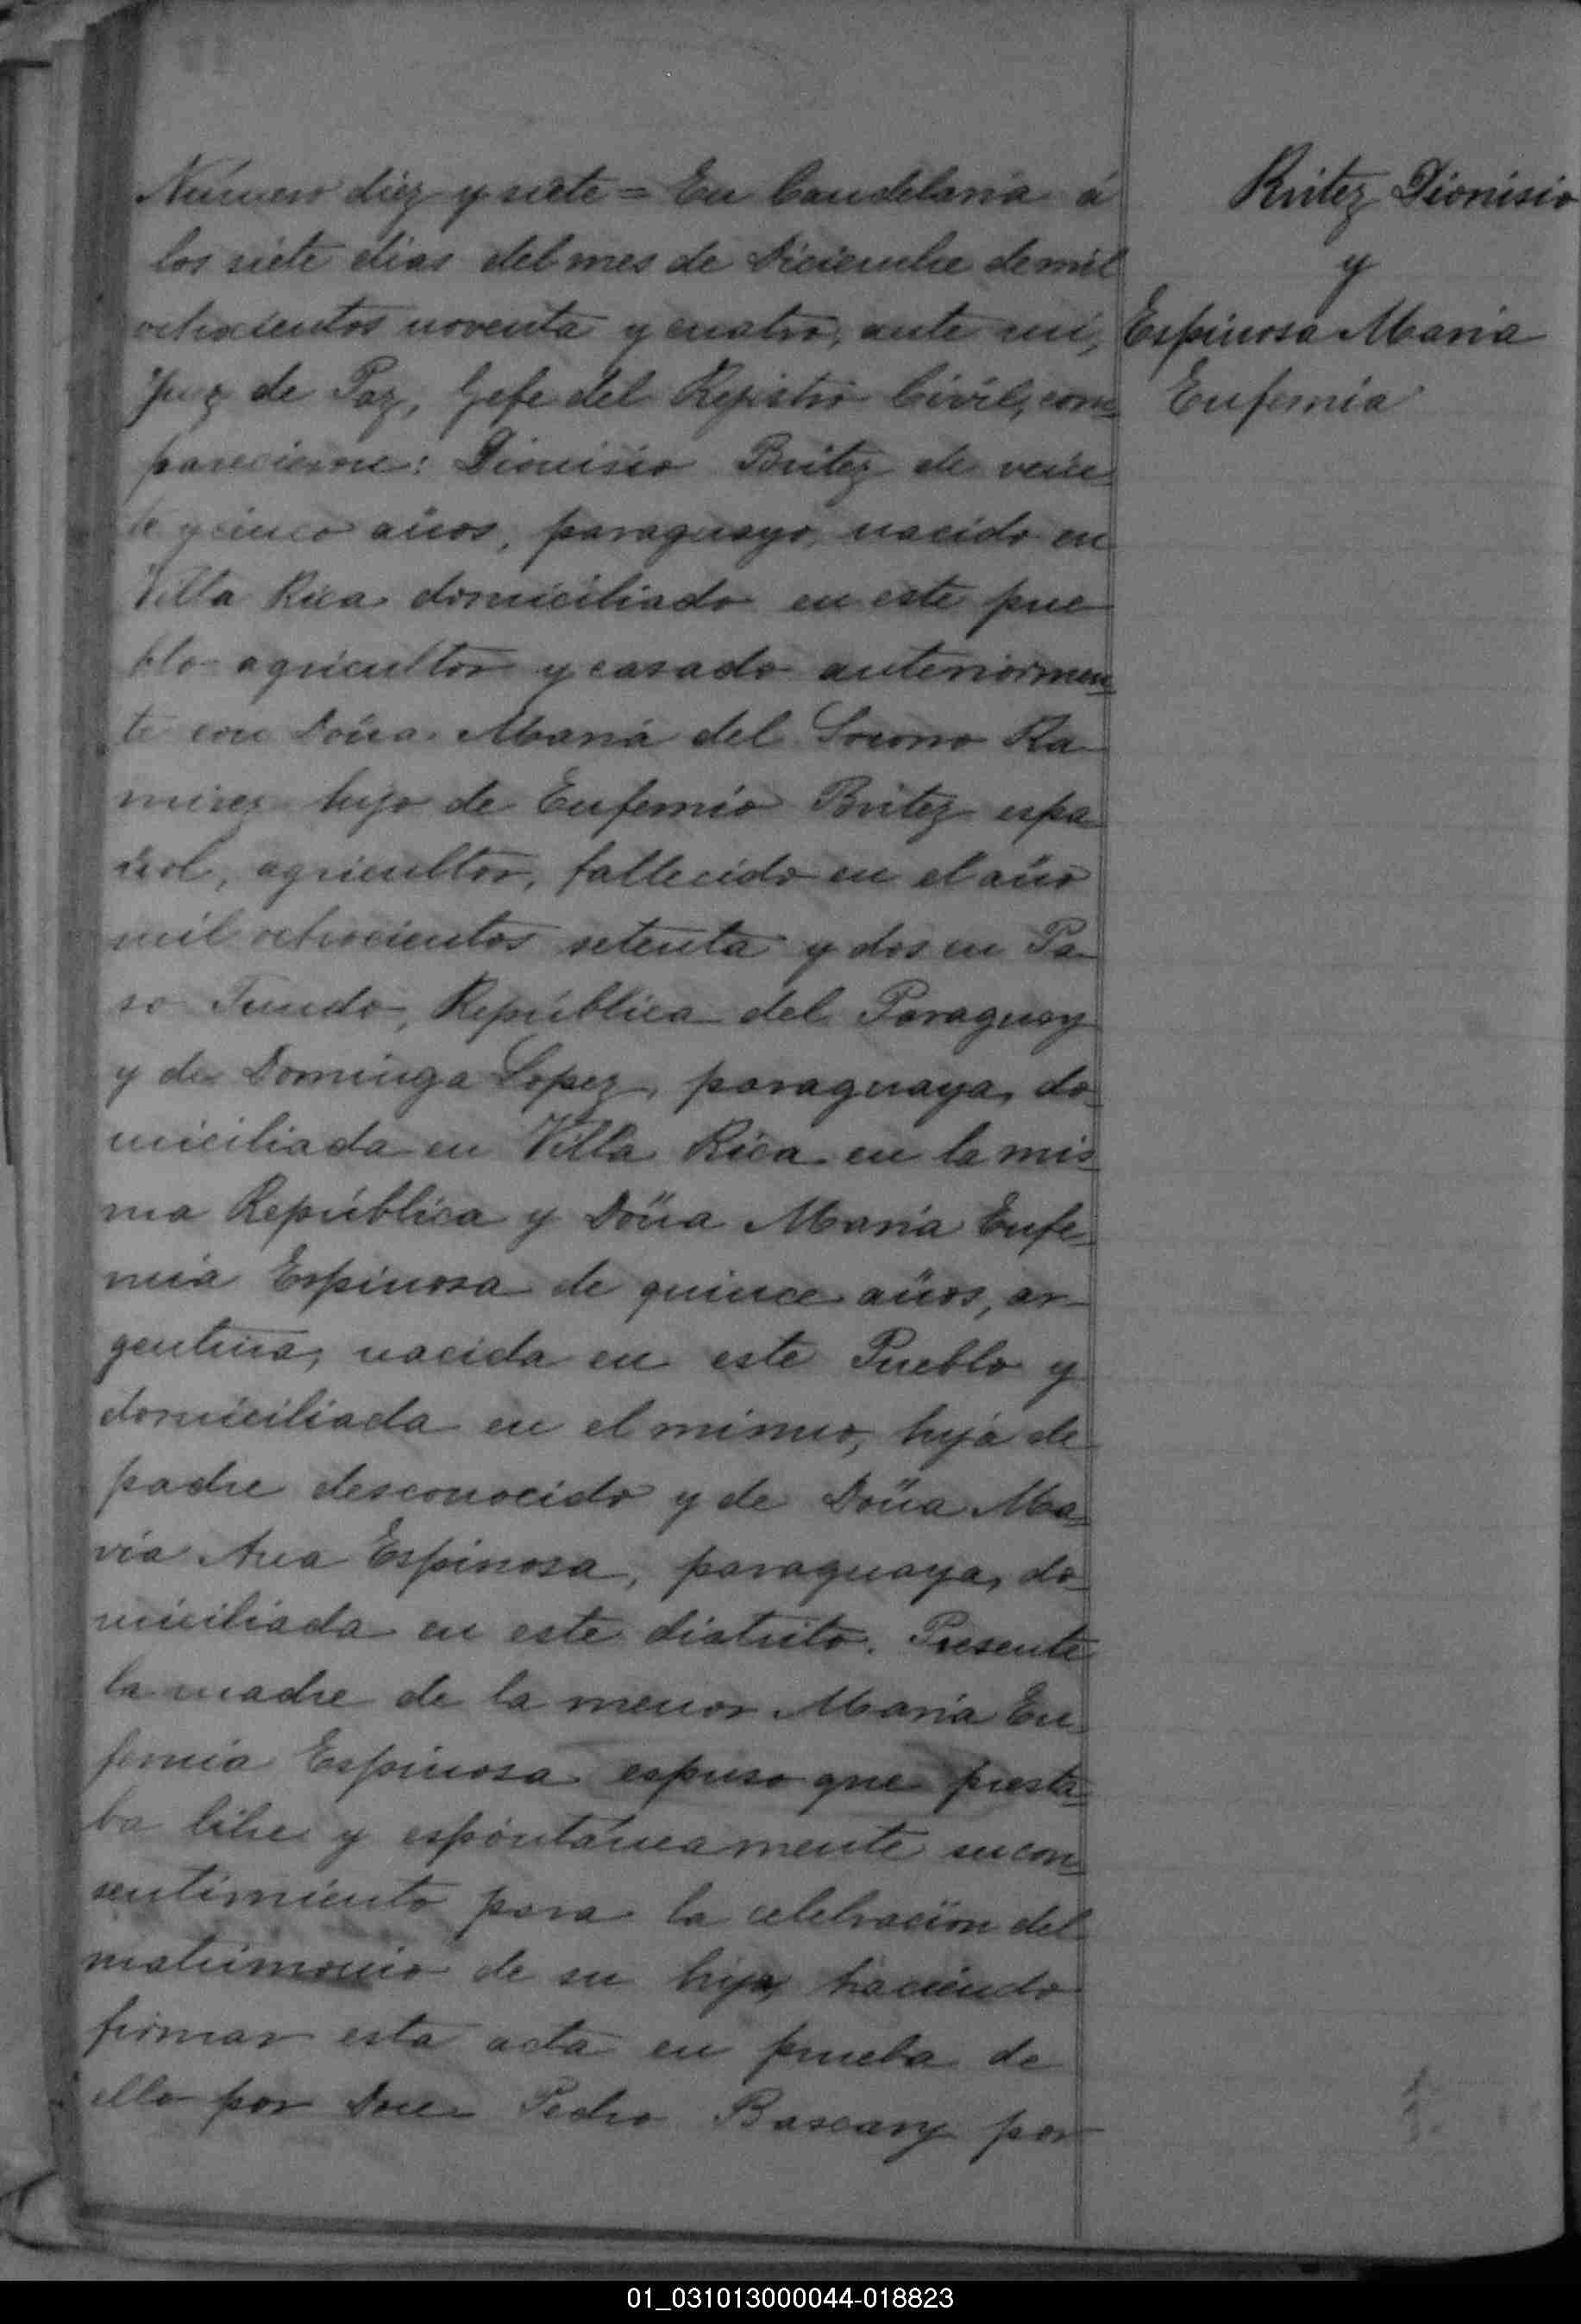 Número diez y siete = En Candelaria á
los siete dias del mes de Diciembre de mil
ochocientos noventa y cuatro, ante mi,
Juez de Paz, Gefe del Registro Civil, com
parecieron: Dionisio Britez de vein
te y cinco años, paraguayo, nacido en
Villa Rica domiciliado en este pue
blo agricultor y casado anteriormen
te con Doña Maria del Socorro Ra
mirez hijo de Eufemio Britez espa
ñol, agricultor, fallecido en el año
mil ochocientos setenta y dos en Pa
so Fundo, República del Paraguay
y de Dominga Lopez, paraguaya, do
miciliada en Villa Rica en la mis
ma República y Doña Maria Eufe
mia Espinosa de quince años, ar
gentina, nacida en este Pueblo y
domiciliada en el mismo, hija de
padre desconocido y de Doña Ma
ria Ana Espinosa, paraguaya, do
miciliada en este distrito. Presente
la madre de la menor Maria Eu
femia Espinosa espuso que presta
ba libre y espóntáneamente su con
sentimiento para la celebracion del
matrimonio de su hija, haciendo
firmar esta acta en prueba de
ello por Don Pedro Bascary por
Britez Dionisio
y
Espinosa Maria
Eufemia
01_031013000044-018823